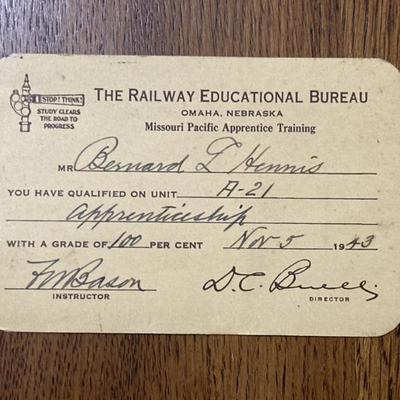 STOP! THINK!
STUDY CLEARS
THE ROAD TO
PROGRESS
THE RAILWAY EDUCATIONAL BUREAU
OMAHA, NEBRASKA
Missouri Pacific Apprentice Training
MR Bernard L Hennis
YOU HAVE QUALIFIED ON UNIT A-21
Apprenticeship
WITH A GRADE OF 100 PER CENT Nov 5 1943
Bason
INSTRUCTOR
D.C. Buell
DIRECTOR